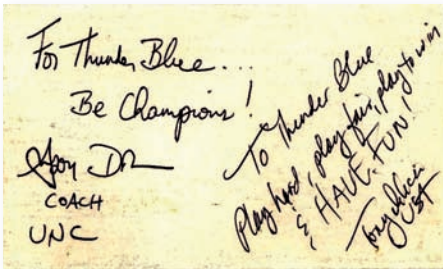 For Thunder Blue...
Be Champions!
COACH
UNC
To Thunder Blue
Play hard, play fair, play to win
& HAVE FUN!
UST